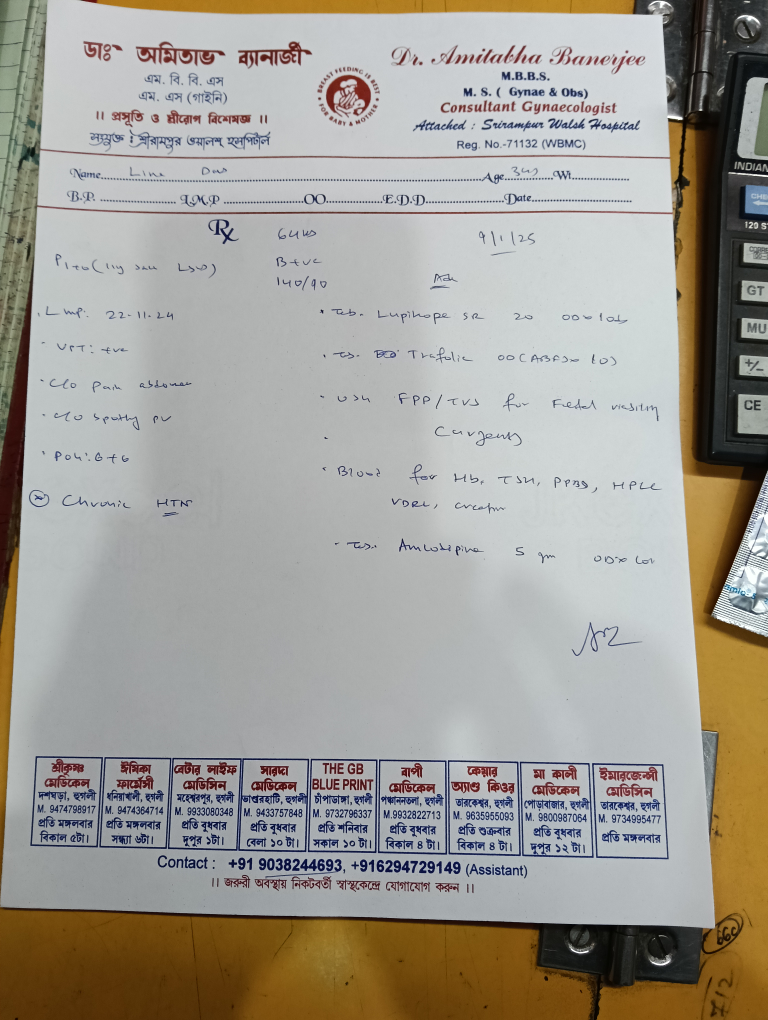 ডাঃ অমিতাভ ব্যানার্জী
এম. বি. বি. এস
এম. এস (গাইনি)
।। প্রসূতি ও স্ত্রীরোগ বিশেষজ্ঞ ।।
সংযুক্ত : শ্রীরামপুর ওয়ালশ হসপিটাল
BREAST FEEDING IS BEST
FOR BABY & MOTHER
Dr. Amitabha Banerjee
M.B.B.S.
M. S. ( Gynae & Obs)
Consultant Gynaecologist
Attached : Srirampur Walsh Hospital
Reg. No.-71132 (WBMC)
Name Lina Das Age Wt
B.P. L.M.P OO E.D.D Date
Rx 9/1/25
B+ve
140/90
Lmp: 22-11-24
UPT: +ve
c/o pain abdomen
c/o spotting PV
Chronic HTN
Tab. SR 20
Tab. Trafolic
USG FPP/TVS for viability
Curgent)
Blood for Hb, TSH, PPBS, HPLC
VDRL,
Tab. Amlodipine 5
শ্রীকৃষ্ণ
মেডিকেল
দশঘড়া, হুগলী
M. 9474798917
প্রতি মঙ্গলবার
বিকাল ৫টা।
ঈষিকা
ফার্মেসী
ধনিয়াখালী, হুগলী
M. 9474364714
প্রতি মঙ্গলবার
সন্ধ্যা ৬টা।
বেটার লাইফ
মেডিসিন
মহেশ্বরপুর, হুগলী
M. 9933080348
প্রতি বুধবার
দুপুর ১টা।
সারদা
মেডিকেল
ভাণ্ডারহাটি, হুগলী
M. 9433757848
প্রতি বুধবার
বেলা ১০ টা।
THE GB
BLUE PRINT
চাঁপাডাঙ্গা, হুগলী
M. 9732796337
প্রতি শনিবার
সকাল ১০ টা।
বাপী
মেডিকেল
পঞ্চাননতলা, হুগলী
M.9932822713
প্রতি বুধবার
বিকাল ৪ টা।
কেয়ার
অ্যাণ্ড কিওর
তারকেশ্বর, হুগলী
M. 9635955093
প্রতি শুক্রবার
বিকাল ৪ টা।
মা কালী
মেডিকেল
পোড়াবাজার, হুগলী
M. 9800987064
প্রতি বুধবার
দুপুর ১২ টা।
ইমারজেন্সী
মেডিসিন
তারকেশ্বর, হুগলী
M. 9734995477
প্রতি মঙ্গলবার
Contact : +91 9038244693, +916294729149 (Assistant)
।। জরুরী অবস্থায় নিকটবর্তী স্বাস্থ্যকেন্দ্রে যোগাযোগ করুন ।।
INDIAN
120 S
GT
MU
+/-
CE